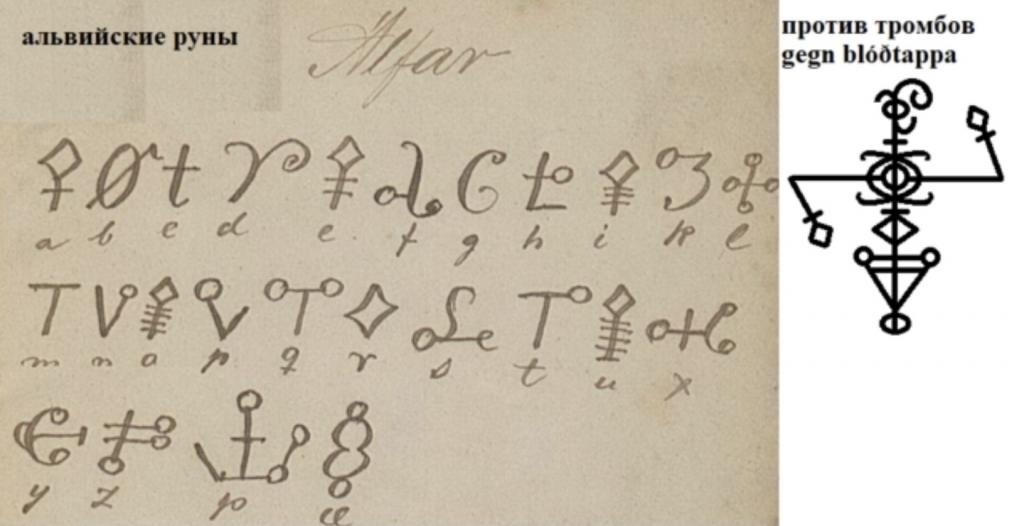 альвийские руны
Alfar
a b c d e f g h i k l
m n o p q r s t u x
y z þ æ
против тромбов
gegn blóðtappa